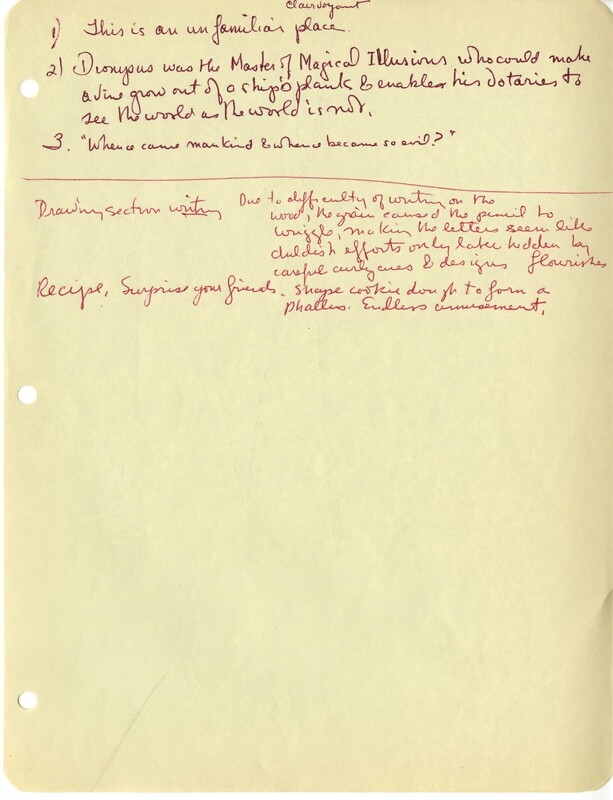 Clairvoyant
1) This is an unfamiliar place.
2) Dionysus was the Master of Magical Illusions who could make
a vine grow out of a ship's plank & enables his votaries to
see the world as the world is not.
3. "Whence came mankind & whence became so evil?"
Drawing section writing Due to difficulty of writing on the
wood, the grain caused the pencil to
wriggle, making the letters seem like
childish efforts only later hidden by
careful curlycues & designs flourishes
Recipe. Surprise your friends. Shape cookie dough to form a
phallus. Endless amusement.